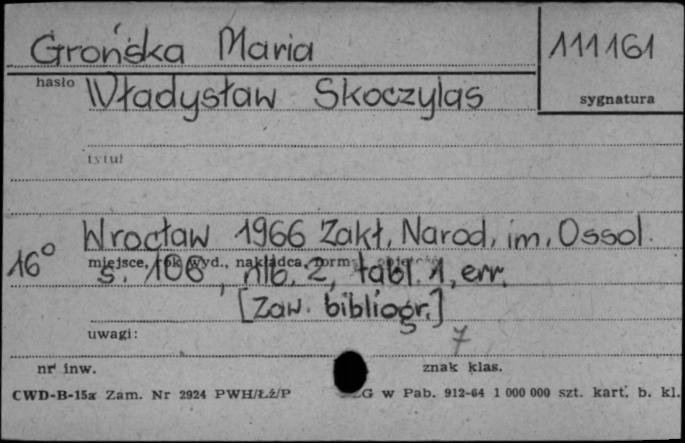 Grońska Maria
111161
hasło
sygnatura
Władysław Skoczylas
tytuł
Wrocław 1966 Zakł. Narod. im. Ossol.
miejsce, rok wyd., nakładca, form
16° s. 106, nlb. 2, tabl. 1, err.
[Zaw. bibliogr.]
uwagi:
7
nr inw.
znak klas.
CWD-B-15a Zam. Nr 2924 PWH/Łź/P G w Pab. 912-64 1 000 000 szt. kart. b. kl.